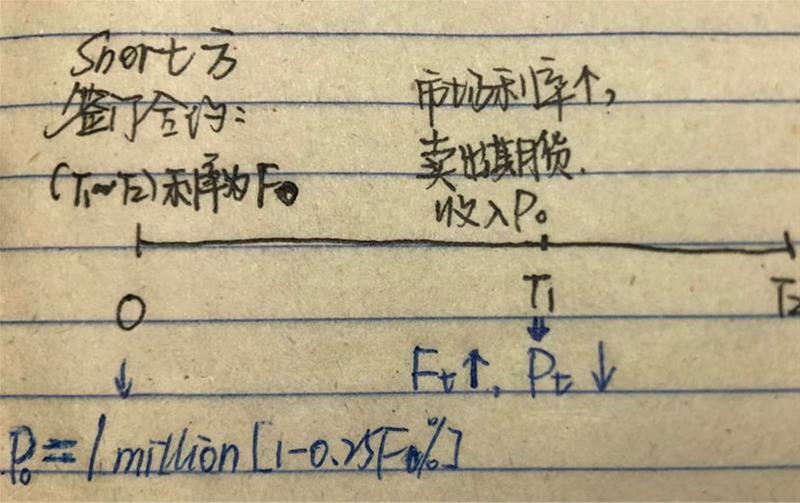 Short方
签订合约：
(T₁~T₂)利率为F₀
市场利率↑，
卖出期货.
收入P₀
0
T₁
T₂
Ft↑, Pt↓
P₀=1 million [1-0.25F₀%]